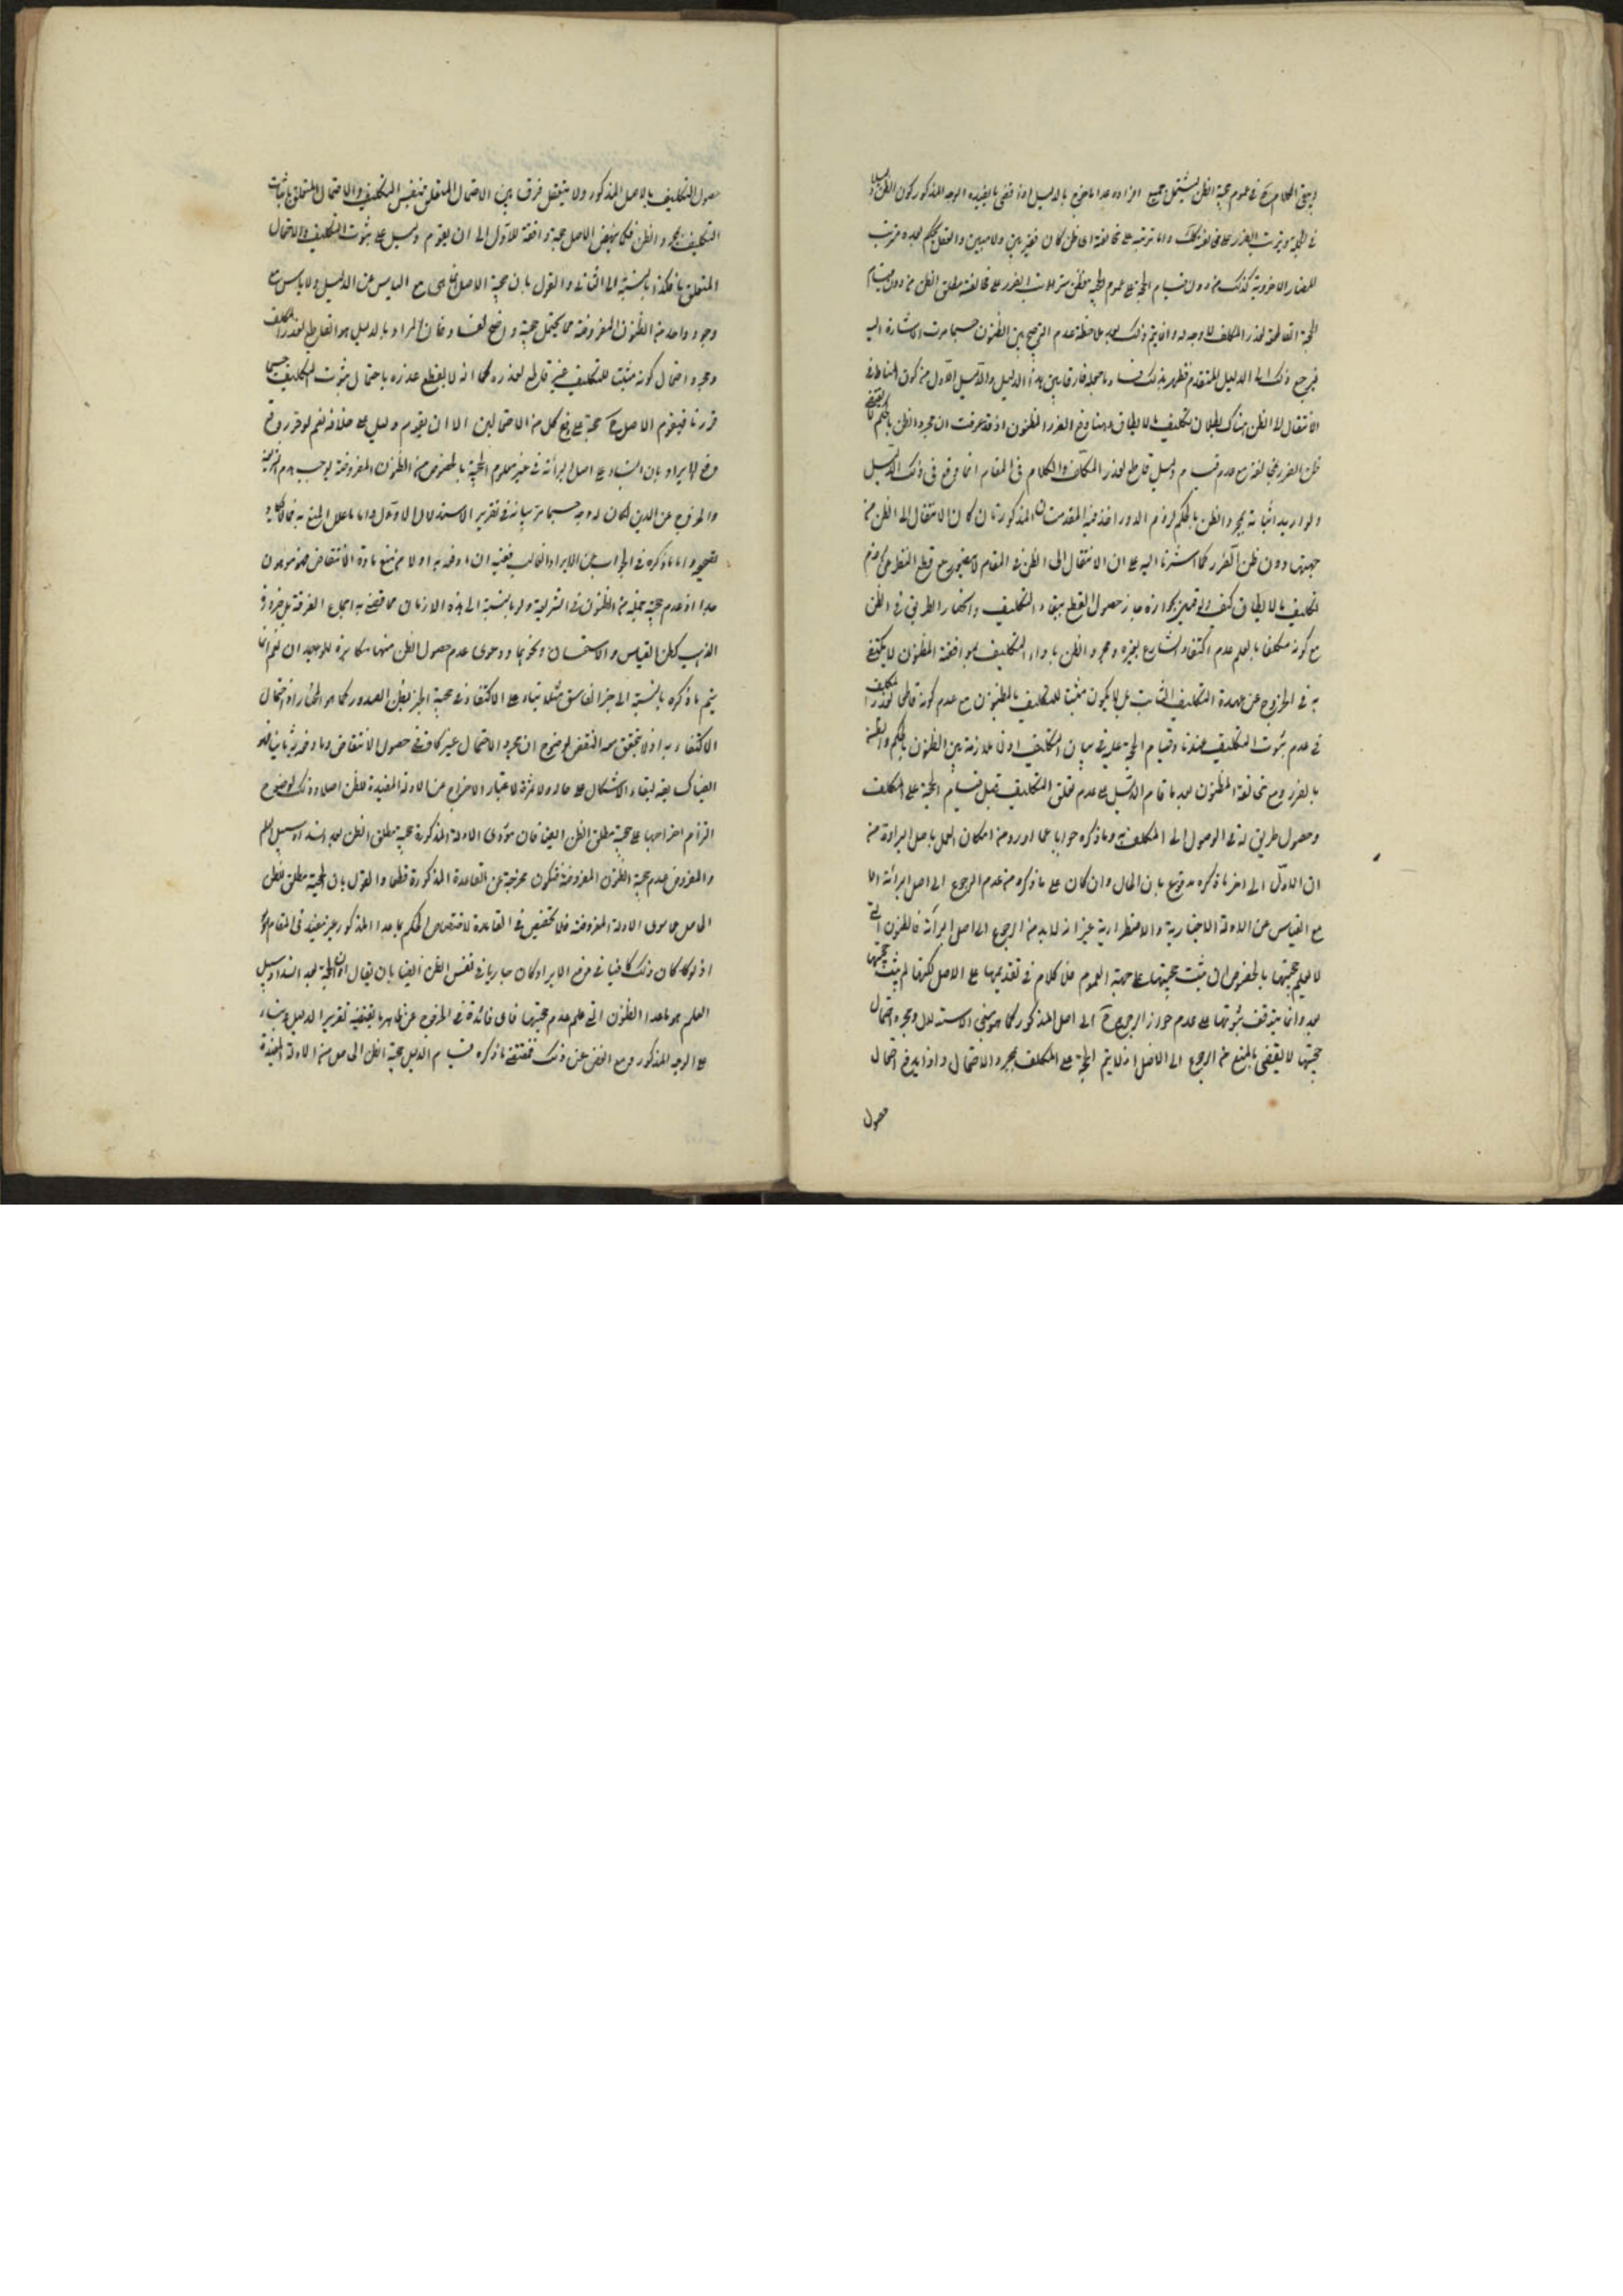 في عموم حجية الظن يشتمل جميع افراده عدا ما خرج بالدليل اذ قضى ما يفيده الوجه المذكور كون الظن دليلا
في الجملة وترتب الضرر على مخالفته كك واما ترتبه على مخالفة اي ظن كان فغير بين ولا مبين والعقل يحكم بعدم ترتب
المضار الاخروية كذلك من دون قيام الحجة على عموم الحجية فظن ترتب الضرر على مخالفة مطلق الظن من دون قيام
الحجة القاطعة لعذر المكلف لا وجه له وانما يتم ذلك بعد ملاحظة عدم الترجيح بين الظنون حسبما مرت الاشارة اليه
فيرجع ذلك الى الدليل المتقدم فظهر بذلك فساد ما جعله فارقا بين هذا الدليل والدليل الاول من كون المناط في
الانتقال الى الظن هناك بطلان تكليف ما لا يطاق وهنا دفع الضرر المظنون اذ قد عرفت ان مجرد الظن بالحكم لا يقتضي
ظن الضرر بمخالفته مع عدم قيام دليل قاطع لعذر المكلف والكلام في المقام انما وقع في ذلك الدليل
ولو اريد اثباته بمجرد الظن بالحكم لزم الدور اخذ فيه المقدمتان المذكورتان كان الانتقال الى الظن من
جهتها دون ظن الضرر كما اشرنا اليه على ان الانتقال الى الظن في المقام مع قطع النظر عن لزوم
تكليف ما لا يطاق كيف ولو قيل بجوازه جاز حصول القطع ببقاء التكليف وانحصار الطريق في الظن
مع كونه مكلفا بالعلم عدم اكتفاء الشارع بغيره ومجرد الظن باداء التكليف بموافقة المظنون لا يكتفي
به في الخروج عن عهدة التكليف الثابت بل لا يكون مثبتا للتكليف بالمظنون مع عدم كونه قاطعا لعذر المكلف
في عدم ثبوت التكليف عندنا وقيام الحجة عليه في بيان التكليف اذ لا ملازمة بين الظنون بالحكم والمظنة
بالضرر مع مخالفة المظنون بعد ما قام الدليل على عدم تعلق التكليف قبل قيام الحجة على المكلف
وحصول طريق له في الوصول الى المكلف به وما ذكره جوابا عما اورده من امكان العمل باصل البراءة من
ان الاول الى اخر ما ذكره مدفوع بان الحال وان كان على ما ذكره من عدم الرجوع الى اصل البراءة اما
مع القياس من الادلة الاختيارية والاضطرارية غير انه لا بد من الرجوع الى اصل البراءة فالظنون التي
لا يعلم حجيتها بالخصوص ان ثبت حجيتها على جهة العموم فلا كلام في تقديمها على الاصل لكنها لم يثبت حجيتها
بعد وانما يتوقف ثبوتها على عدم جواز الرجوع الى اصل المذكور كما هو مبنى الاستدلال ومجرد احتمال
حجيتها لا يقضي بالمنع من الرجوع الى الاصل اذ لا يتم الحجة على المكلف بمجرد الاحتمال واذا يدفع احتمال
حصول
حصول التكليف بالاصل المذكور ولا يتعقل فرق بين الاحتمال المتعلق بنفس التكليف والاحتمال المتعلق باثبات
التكليف بمجرد الظن فكما ينهض الاصل حجة دافعة للاول الى ان يقوم دليل على ثبوت التكليف والاحتمال
المتعلق به فكذا بالنسبة الى الثاني والقول بان حجية الاصل انما هي مع الياس عن الدليل ولا ياس مع
وجود واحد من الظنون المفروضة مما يحتمل حجيته واضح الفساد فان المراد بالدليل هو القاطع لعذر المكلف
ومجرد احتمال كونه مثبتا للتكليف غير قاطع لعذره كما انه لا ينقطع عذره باحتمال ثبوت التكليف حسبما
قررنا فيقوم الاصل حجة على دفع كل من الاحتمالين الا ان يقوم دليل على خلافه نعم لو قرر
دفع الايراد بان البناء على اصل البراءة في غير معلوم الحجية بالخصوص من الظنون المفروضة يوجب هدم الشريعة
والخروج عن الدين لكان له وجه حسبما مر بيانه في تقرير الاستدلال الاول واما ما علل المنع به فمما لا
واما ما ذكره في الجواب عن الايراد الثالث ففيه ان اوقد به اولا من منع مادة الانتقاض فهو موهون
جدا اذ عدم حجية جملة من الظنون في الشريعة ولو بالنسبة الى هذه الازمان مما قضى به اجماع الفرقة بل ضرورة
المذهب كظن القياس والاستحسان ونحوهما ودعوى عدم حصول الظن منها مكابرة للوجدان نعم انما
يتم ما ذكره بالنسبة الى خبر الفاسق مثلا بناء على الاكتفاء في حجية الخبر بظن الصدور كما هو المختار اذ احتمال
الاكتفاء به اذ لا يتحقق معه النقض لوضوح ان مجرد الاحتمال غير كاف في حصول الانتقاض وما وقد به ثانيا
الفيناك بعد لبقاء الاشكال على حاله ولا ثمرة لاعتبار الاخراج عن الادلة المفيدة للظن اصلا وذلك لوضوح
التزام اخراجها على حجية مطلق الظن ايضا فان مؤدى الادلة المذكورة حجية مطلق الظن بعد انسداد سبيل العلم
والمفروض عدم حجية الظنون المفروضة فتكون مخرجة عن القاعدة المذكورة قطعا والقول بان الحجية مطلق الظن
الحاصل مما سوى الادلة المفروضة فلا تخصيص في القاعدة لاختصاص الحكم بما عدا المذكور غير مفيد في المقام
اذ لو كان ذلك كافيا في دفع الايراد كان جاريا في نفس الظن ايضا بان يقال ان الحجة بعد انسداد سبيل
العلم هو ما عدا الظنون التي علم عدم حجيتها فاي فائدة في الخروج عن ظاهر ما يقتضيه تقرير الدليل وبنائه
على الوجه المذكور ومع الغض عن ذلك فقضية ما ذكره قيام الدليل حجية الظن الحاصل من الادلة المفيدة